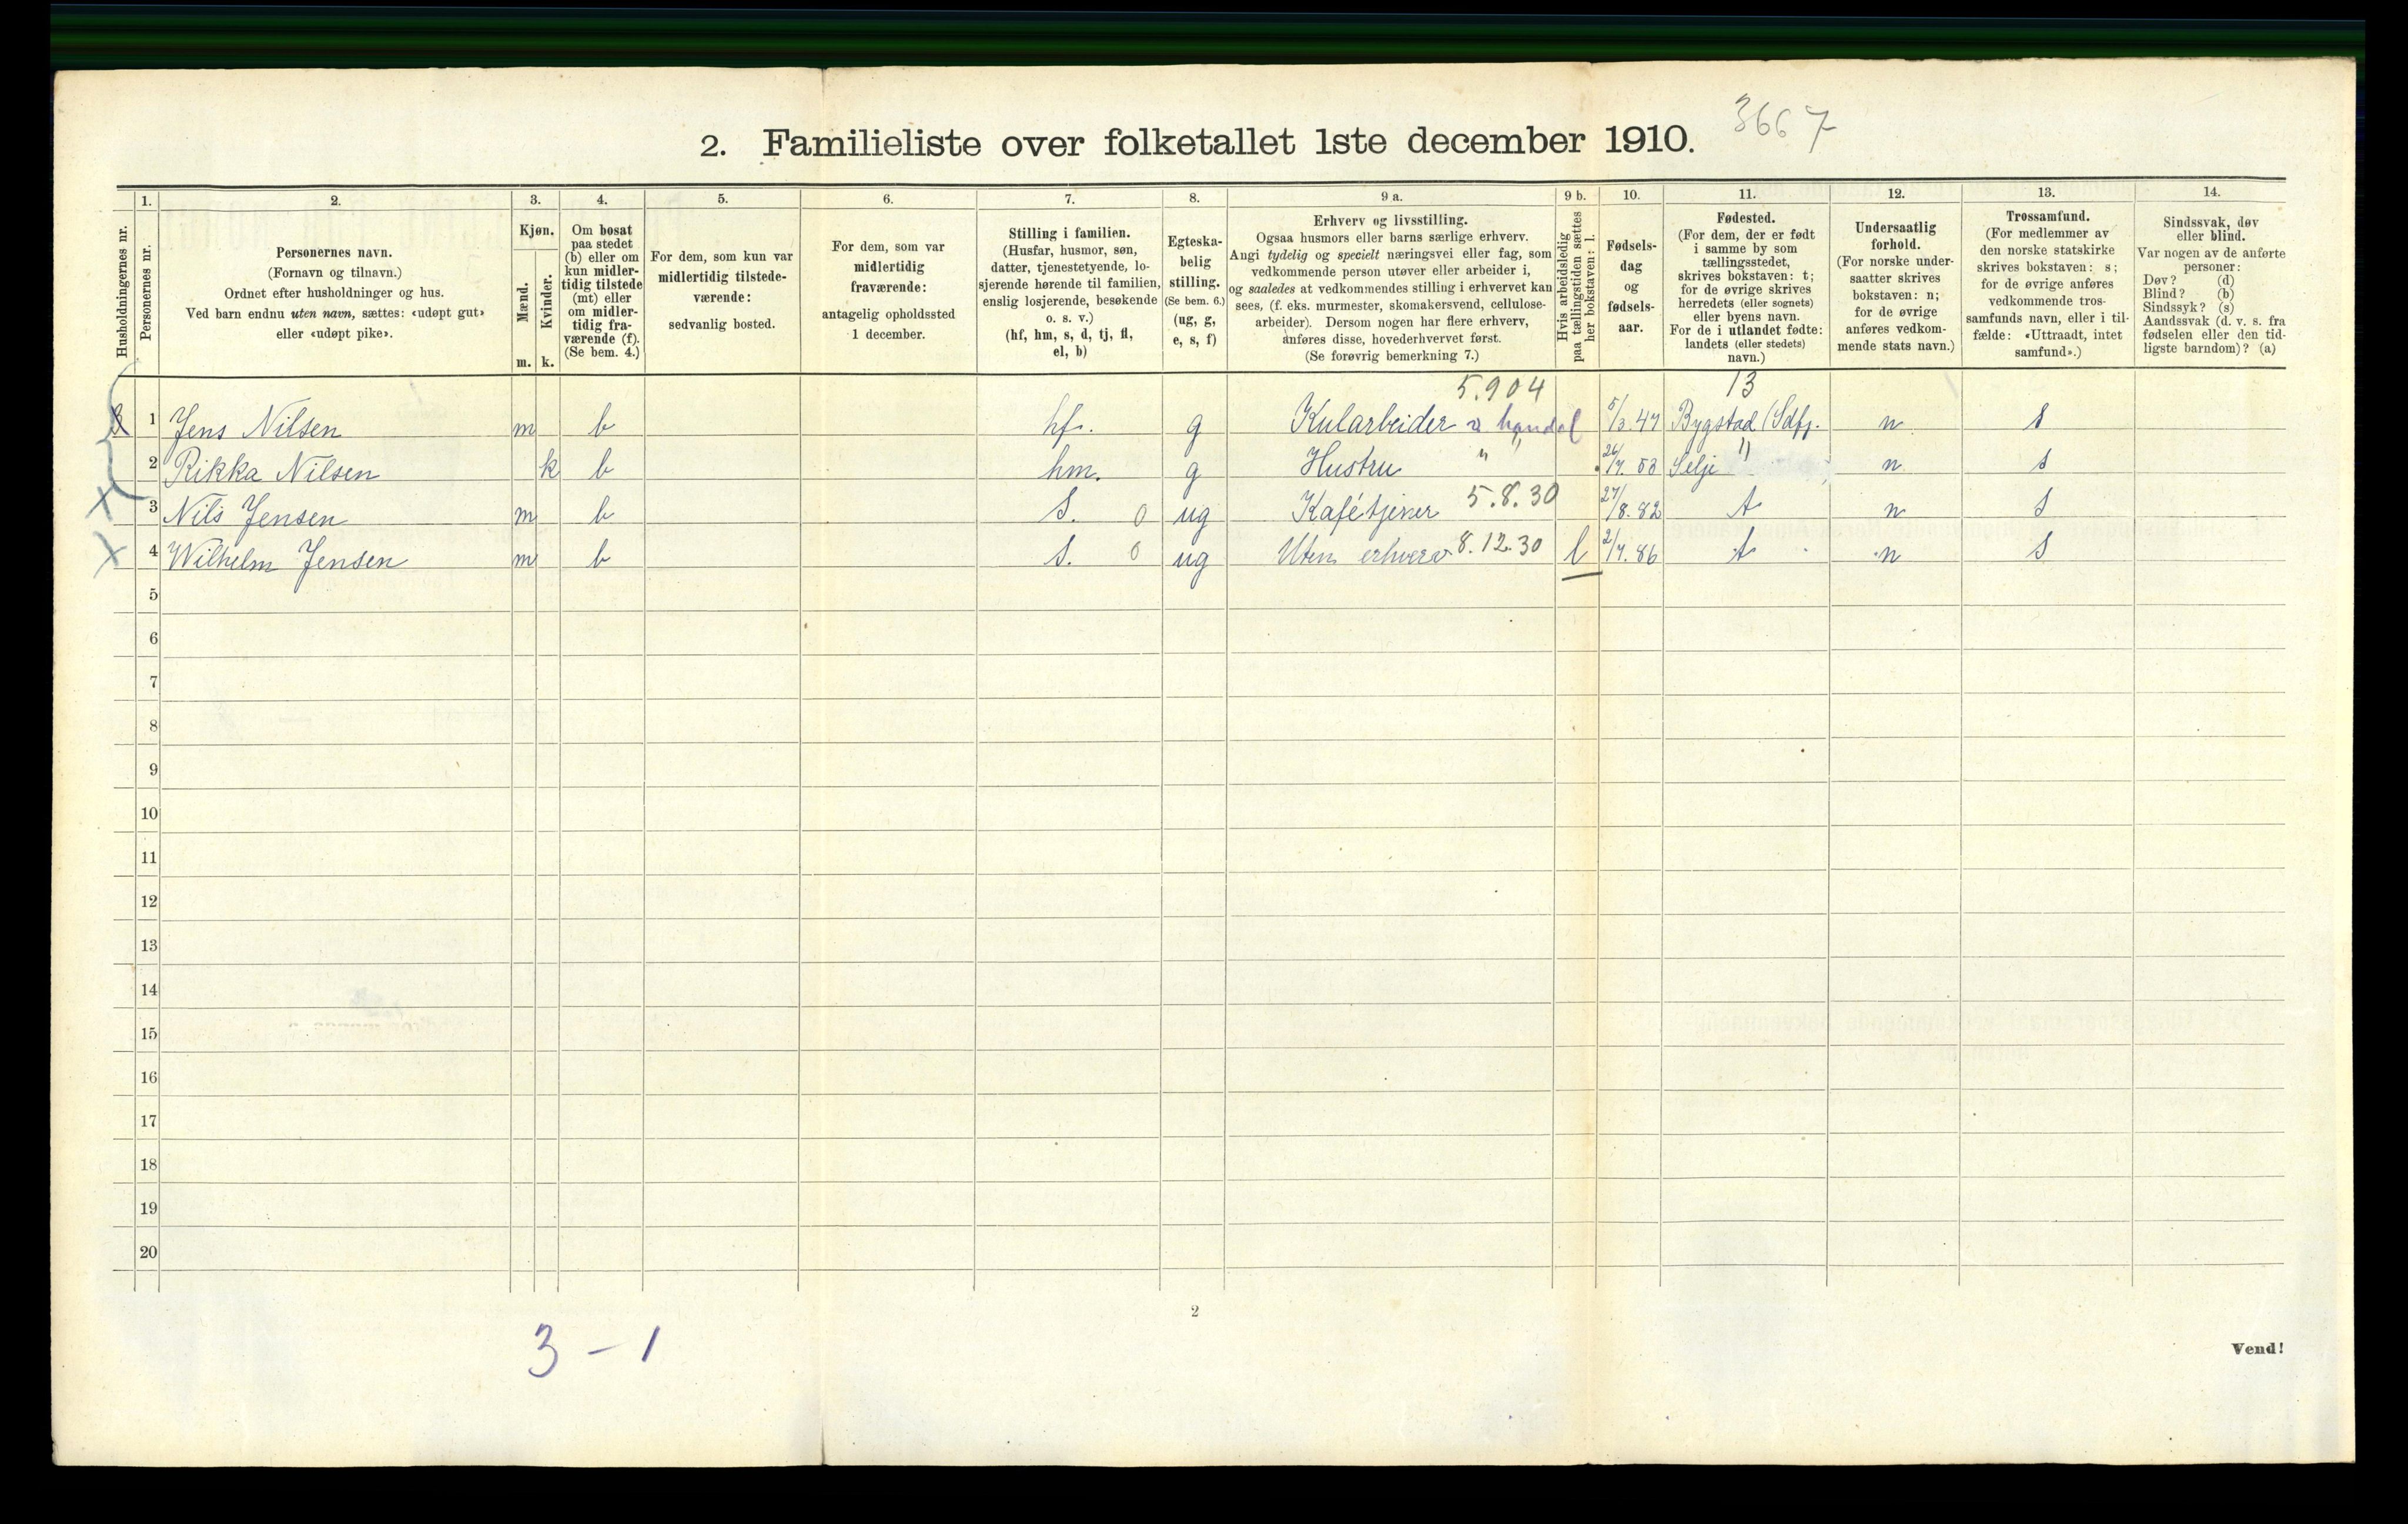 2. Familieliste over folketallet 1ste december 1910.
3667
Husholdningernes nr.
1.
Personernes nr.
2.
Personernes navn.
(Fornavn og tilnavn.)
Ordnet efter husholdninger og hus.
Ved barn endnu uten navn, sættes: «udøpt gut»
eller «udøpt pike».
3.
Kjøn.
Mænd.
Kvinder.
m. k.
4.
Om bosat
paa stedet
(b) eller om
kun midler-
tidig tilstede
(mt) eller
om midler-
tidig fra-
værende (f).
(Se bem. 4.)
5.
For dem, som kun var
midlertidig tilstede-
værende:
sedvanlig bosted.
6.
For dem, som var
midlertidig
fraværende:
antagelig opholdssted
1 december.
7.
Stilling i familien.
(Husfar, husmor, søn,
datter, tjenestetyende, lo-
sjerende hørende til familien,
enslig losjerende, besøkende
o. s. v.)
(hf, hm, s, d, tj, fl,
el, b)
8.
Egteska-
belig
stilling.
(Se bem. 6.)
(ug, g,
e, s, f)
9 a.
Erhverv og livsstilling.
Ogsaa husmors eller barns særlige erhverv.
Angi tydelig og specielt næringsvei eller fag, som
vedkommende person utøver eller arbeider i,
og saaledes at vedkommendes stilling i erhvervet kan
sees, (f. eks. murmester, skomakersvend, cellulose-
arbeider). Dersom nogen har flere erhverv,
anføres disse, hovederhvervet først.
(Se forøvrig bemerkning 7.)
9 b.
Hvis arbeidsledig
paa tællingstiden sættes
her bokstaven: l.
10.
Fødsels-
dag
og
fødsels-
aar.
11.
Fødested.
(For dem, der er født
i samme by som
tællingsstedet,
skrives bokstaven: t;
for de øvrige skrives
herredets (eller sognets)
eller byens navn.
For de i utlandet fødte:
landets (eller stedets)
navn.)
12.
Undersaatlig
forhold.
(For norske under-
saatter skrives
bokstaven: n;
for de øvrige
anføres vedkom-
mende stats navn.)
13.
Trossamfund.
(For medlemmer av
den norske statskirke
skrives bokstaven: s;
for de øvrige anføres
vedkommende tros-
samfunds navn, eller i til-
fælde: «Uttraadt, intet
samfund».)
14.
Sindssvak, døv
eller blind.
Var nogen av de anførte
personer:
Døv? (d)
Blind? (b)
Sindssyk? (s)
Aandssvak (d. v. s. fra
fødselen eller den tid-
ligste barndom)? (a)
5.904 13
1 Jens Nilsen m b hf. g Kularbeider v handel 5/3.47 Bygstad (Sdfj. n s
2 Rikka Nilsen k b hm. g Hustru " " 26/7.53 Selje " n s
3 Nils Jensen m b S. 0 ug Kafétjener 5.8.30 27/8.82 t n S
4 Wilhelm Jensen m b S. 0 ug Uten erhverv 8.12.30 l 2/7.86 t n S
5
6
7
8
9
10
11
12
13
14
15
16
17
18
19
20
2
3 - 1
Vend!